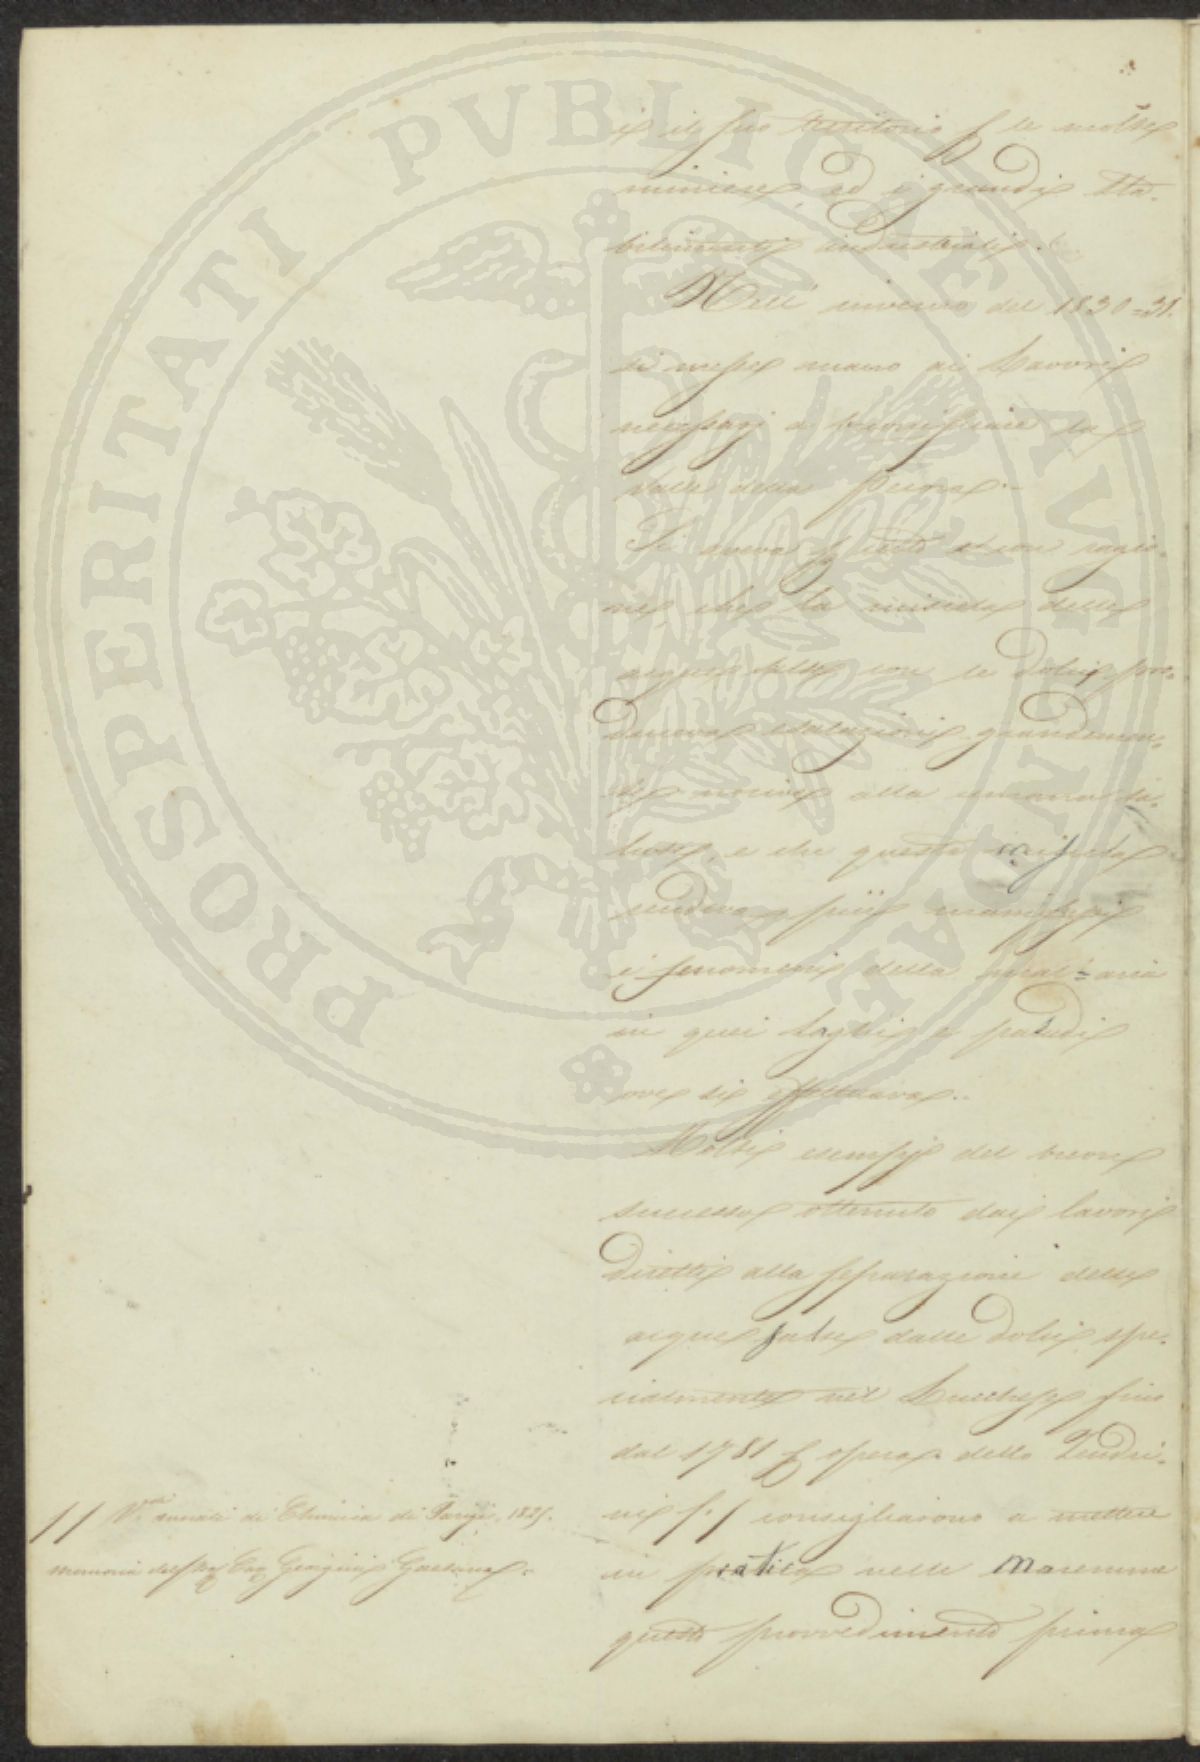 è il suo territorio p le molte
miniere, ed i grandi sta-
bilimenti industriali.
Nell' inverno del 1830=31.
si messe mano ai Lavori
necessarj a bonificare la
Valle della Pecora.
Si aveva p certo et con ragio-
ne, che la miscela delle
acque salse con le dolci pro-
duceva esalazioni grandemen-
te nocive alla umana sa-
lute, e che questa miscela
rendeva più manifesti
i fenomeni della mal'=aria
in quei Laghi e paludi
ove si effettuava.
Molti esempj del buon
successo ottenuto dai lavori
diretti alla separazione delle
acque salse dalle dolci spe-
cialmente nel Lucchese fino
dal 1781 p opera dello Zendri-
ni /./ consigliarono a mettere
in pratica nelle Maremme
questo provvedimento prima
/ / V. annali di Chimica di Parigi, 1825.
memoria del Sig Cav Giorgini Gaetano.
PROSPERITATI PVBLICAE AVGENDAE